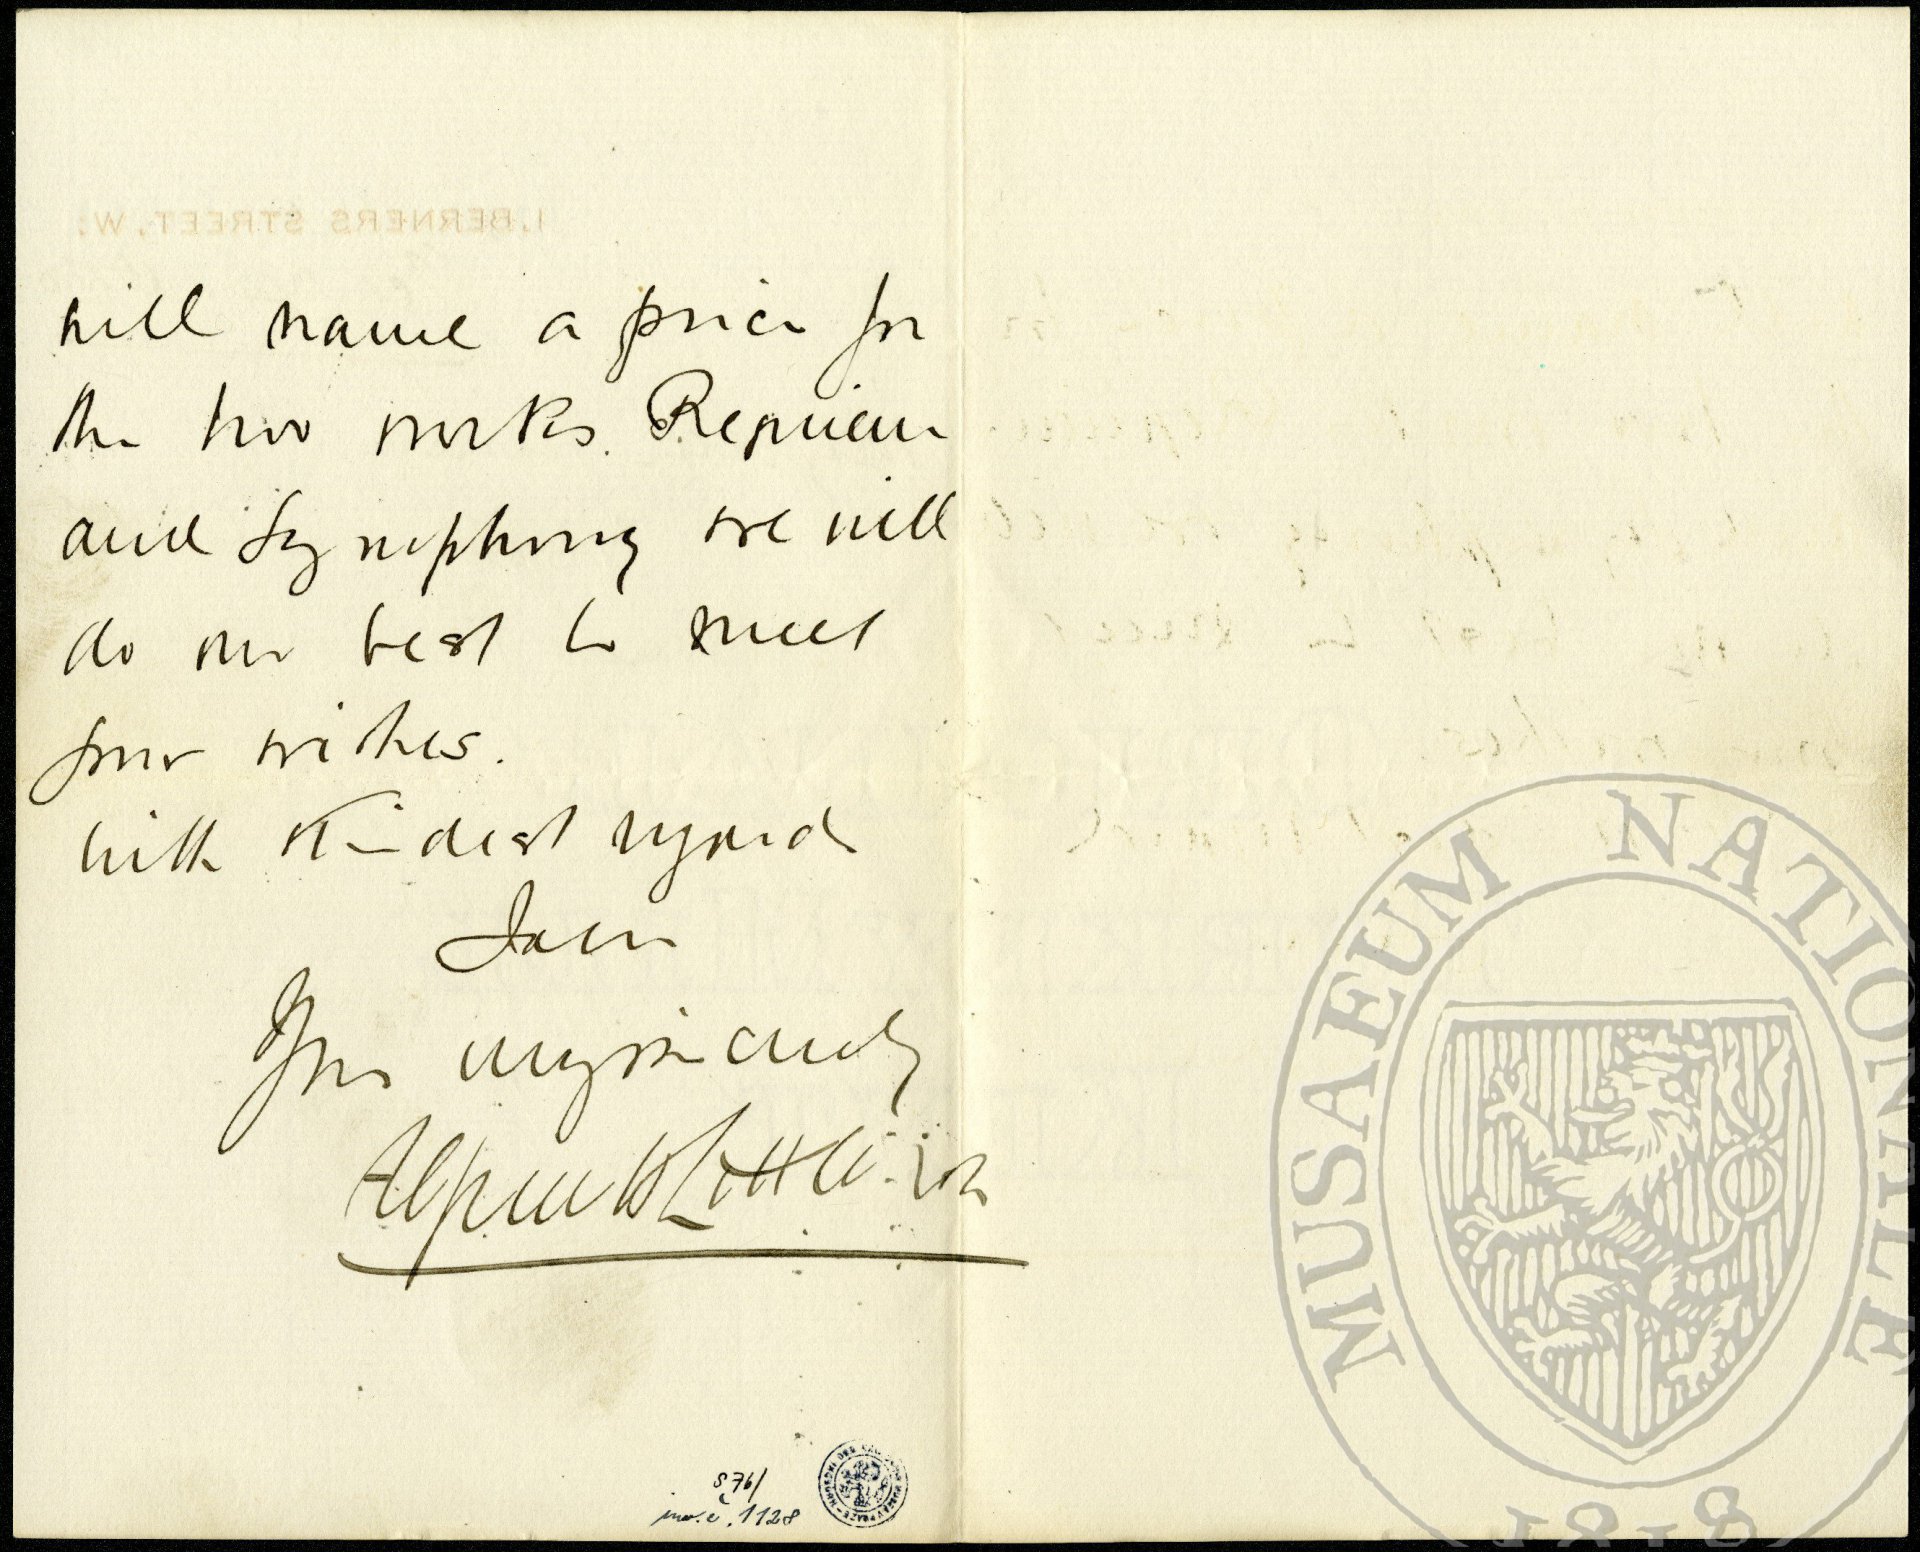 1, BERNERS STREET, W.
will name a price for
the two works Requiem
and Symphony we will
do our best to meet
your wishes.
with kindest regards
I am
Yours very sincerely
Alfred H Littleton
S 76/
inv. č. 1128
MUSAEUM NATIONALE
1818